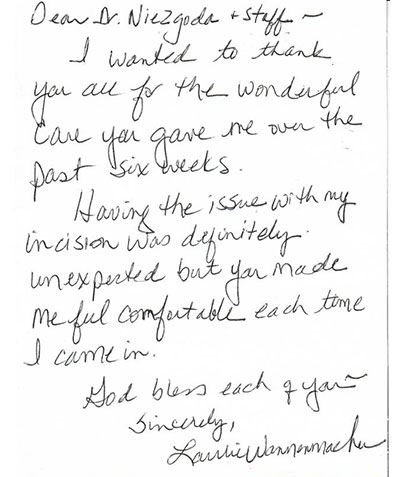 Dear Dr. Niezgoda + Staff ~
I wanted to thank
you all for the wonderful
care you gave me over the
past six weeks.
Having the issue with my
incision was definitely
unexpected but you made
me feel comfortable each time
I came in.
God bless each of you ~
Sincerely,
Laurie Wannenmacher